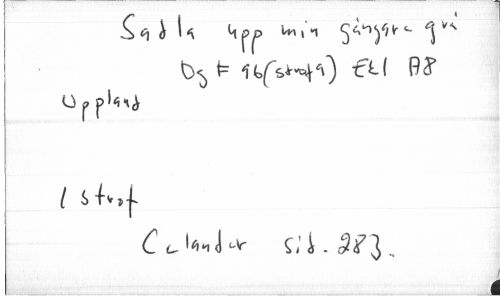 Sadla upp min gångare grå
Dg F 96 (strof 9) EEI A8
Uppland
1 strof
Celander sid. 283.